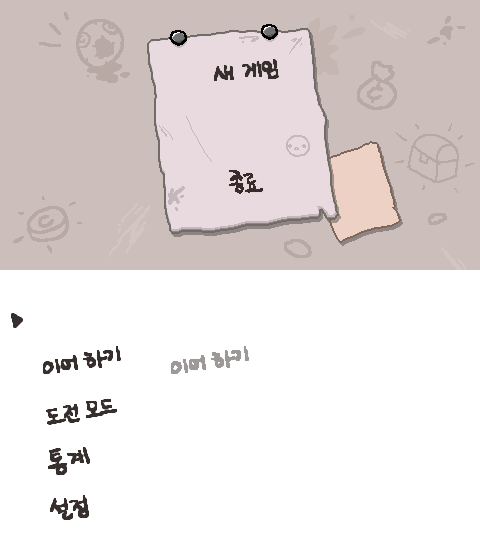 새 게임
종료
이어 하기 이어 하기
도전 모드
통계
설정